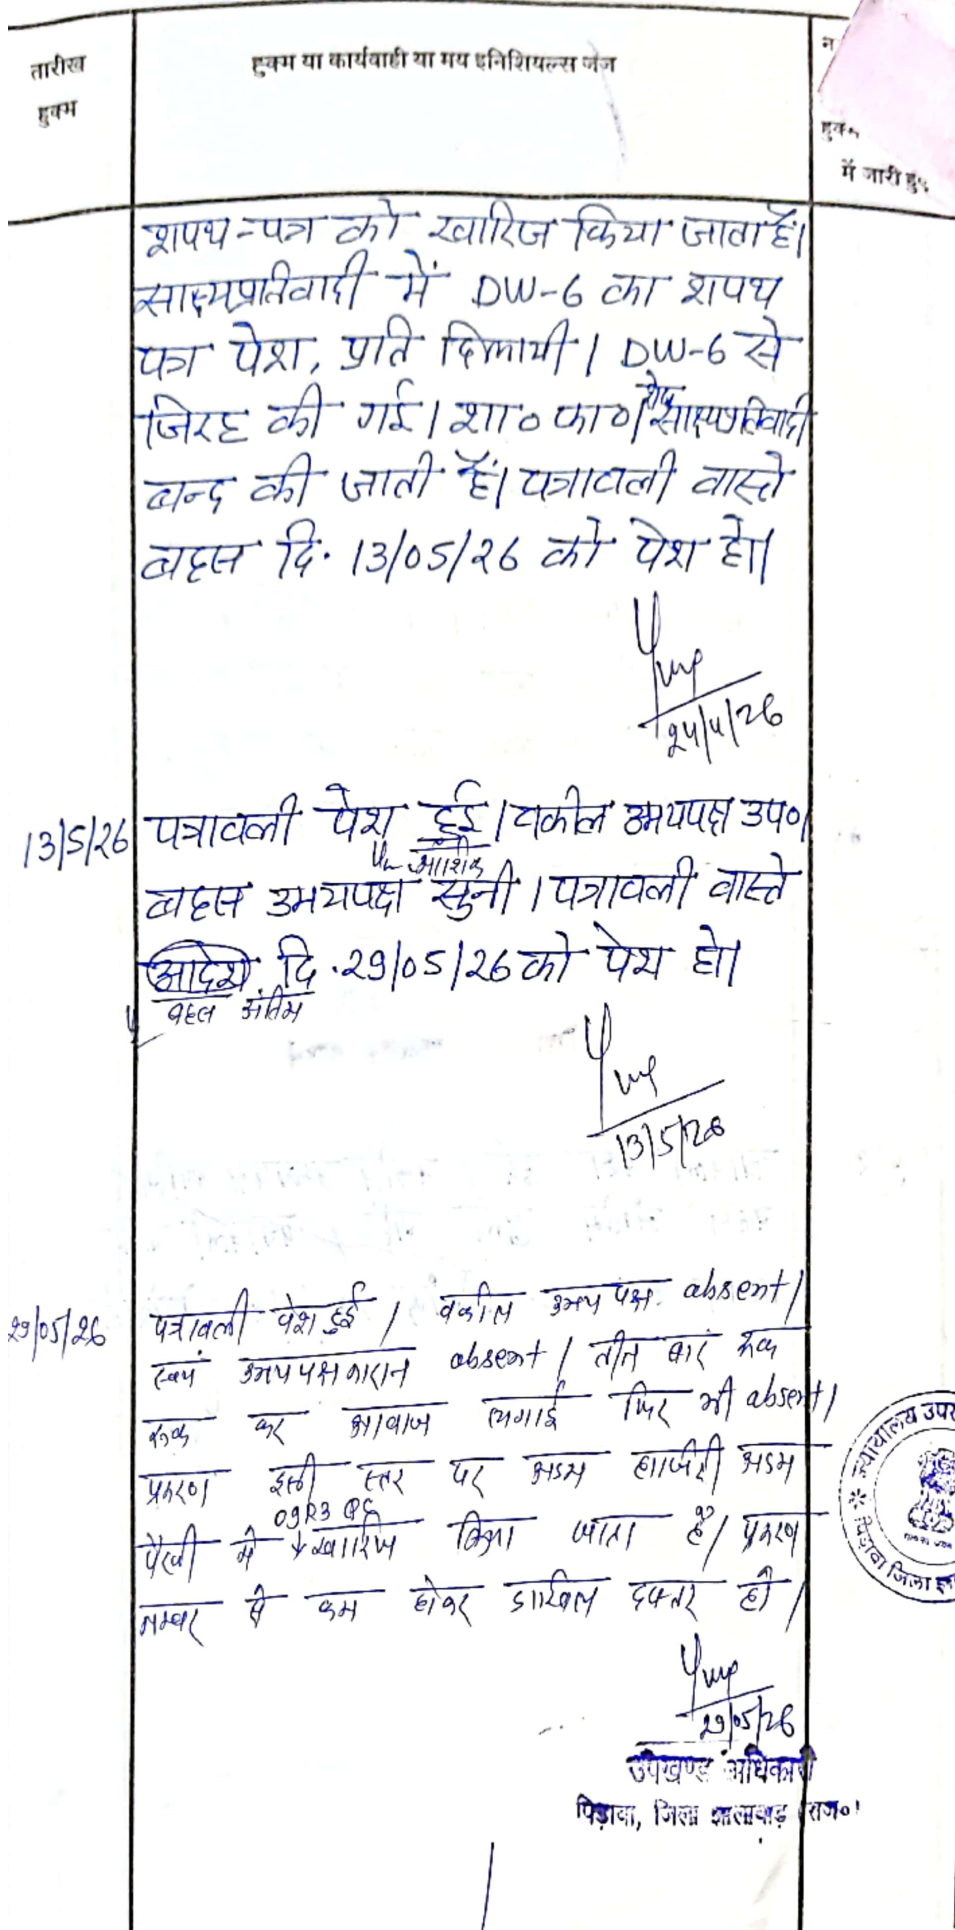 तारीख
हुक्म
हुक्म या कार्यवाही या मय इनिशियल्स जज
न
हुक्म
में जारी हुए
शपथ-पत्र को खारिज किया जाता है।
साक्ष्यप्रतिवादी में DW-6 का शपथ
पत्र पेश, प्रति दिलायी। DW-6 से
जिरह की गई। शा० फा०। शेष साक्ष्यप्रतिवादी
बन्द की जाती हैं। पत्रावली वास्ते
बहस दि. 13/05/26 को पेश हो।
24/4/26
13/5/26 पत्रावली पेश हुई। वकील उभयपक्ष उप०।
आंशिक
बहस उभयपक्ष सुनी। पत्रावली वास्ते
आदेश दि. 29/05/26 को पेश हो।
बहस अंतिम
13/5/26
29/05/26 पत्रावली पेश हुई। वकील उभय पक्ष absent।
स्वयं उभयपक्षकारान absent। तीन बार रूक
रूक कर आवाज लगाई फिर भी absent।
प्रकरण इसी स्तर पर अदम हाजिरी अदम
O9R3 CPC
पैरवी में खारिज किया जाता है। प्रकरण
नम्बर से कम होकर दाखिल दफ्तर हो।
29/05/26
उपखण्ड अधिकारी
पिड़ावा, जिला झालावाड़ (राज०)
न्यायालय उपख
पिड़ावा जिला झा